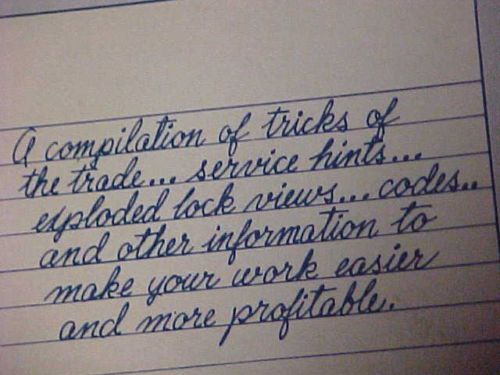 A compilation of tricks of
the trade... service hints...
exploded lock views... codes..
and other information to
make your work easier
and more profitable.